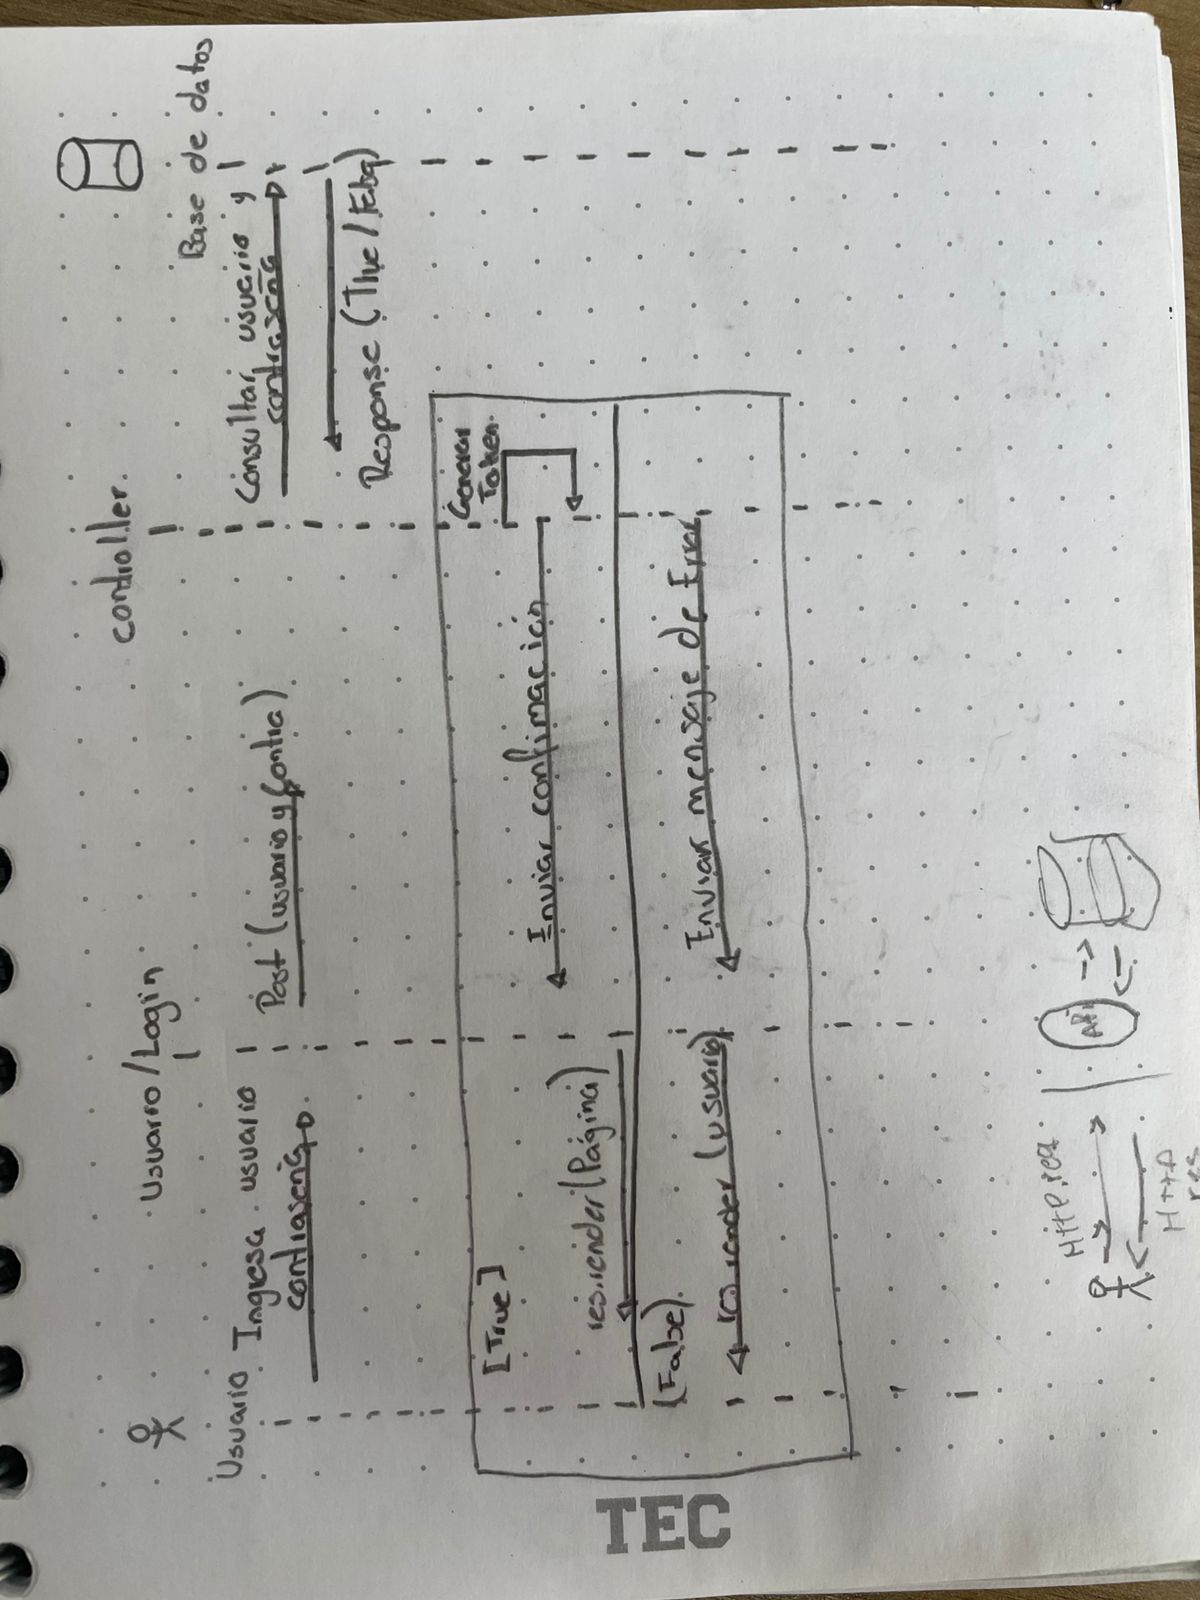 Usuario
Usuario/Login
controller.
Base de datos
Ingresa usuario
contraseña
Post (usuario y Contra)
Consultar usuario y
contraseña
Response (True/False)
[True]
Generar
Token.
Enviar confirmación
res.render(Página)
[False]
Enviar mensaje de Error
res.render (usuario)
HTTP.req
API
HTTP
res
TEC